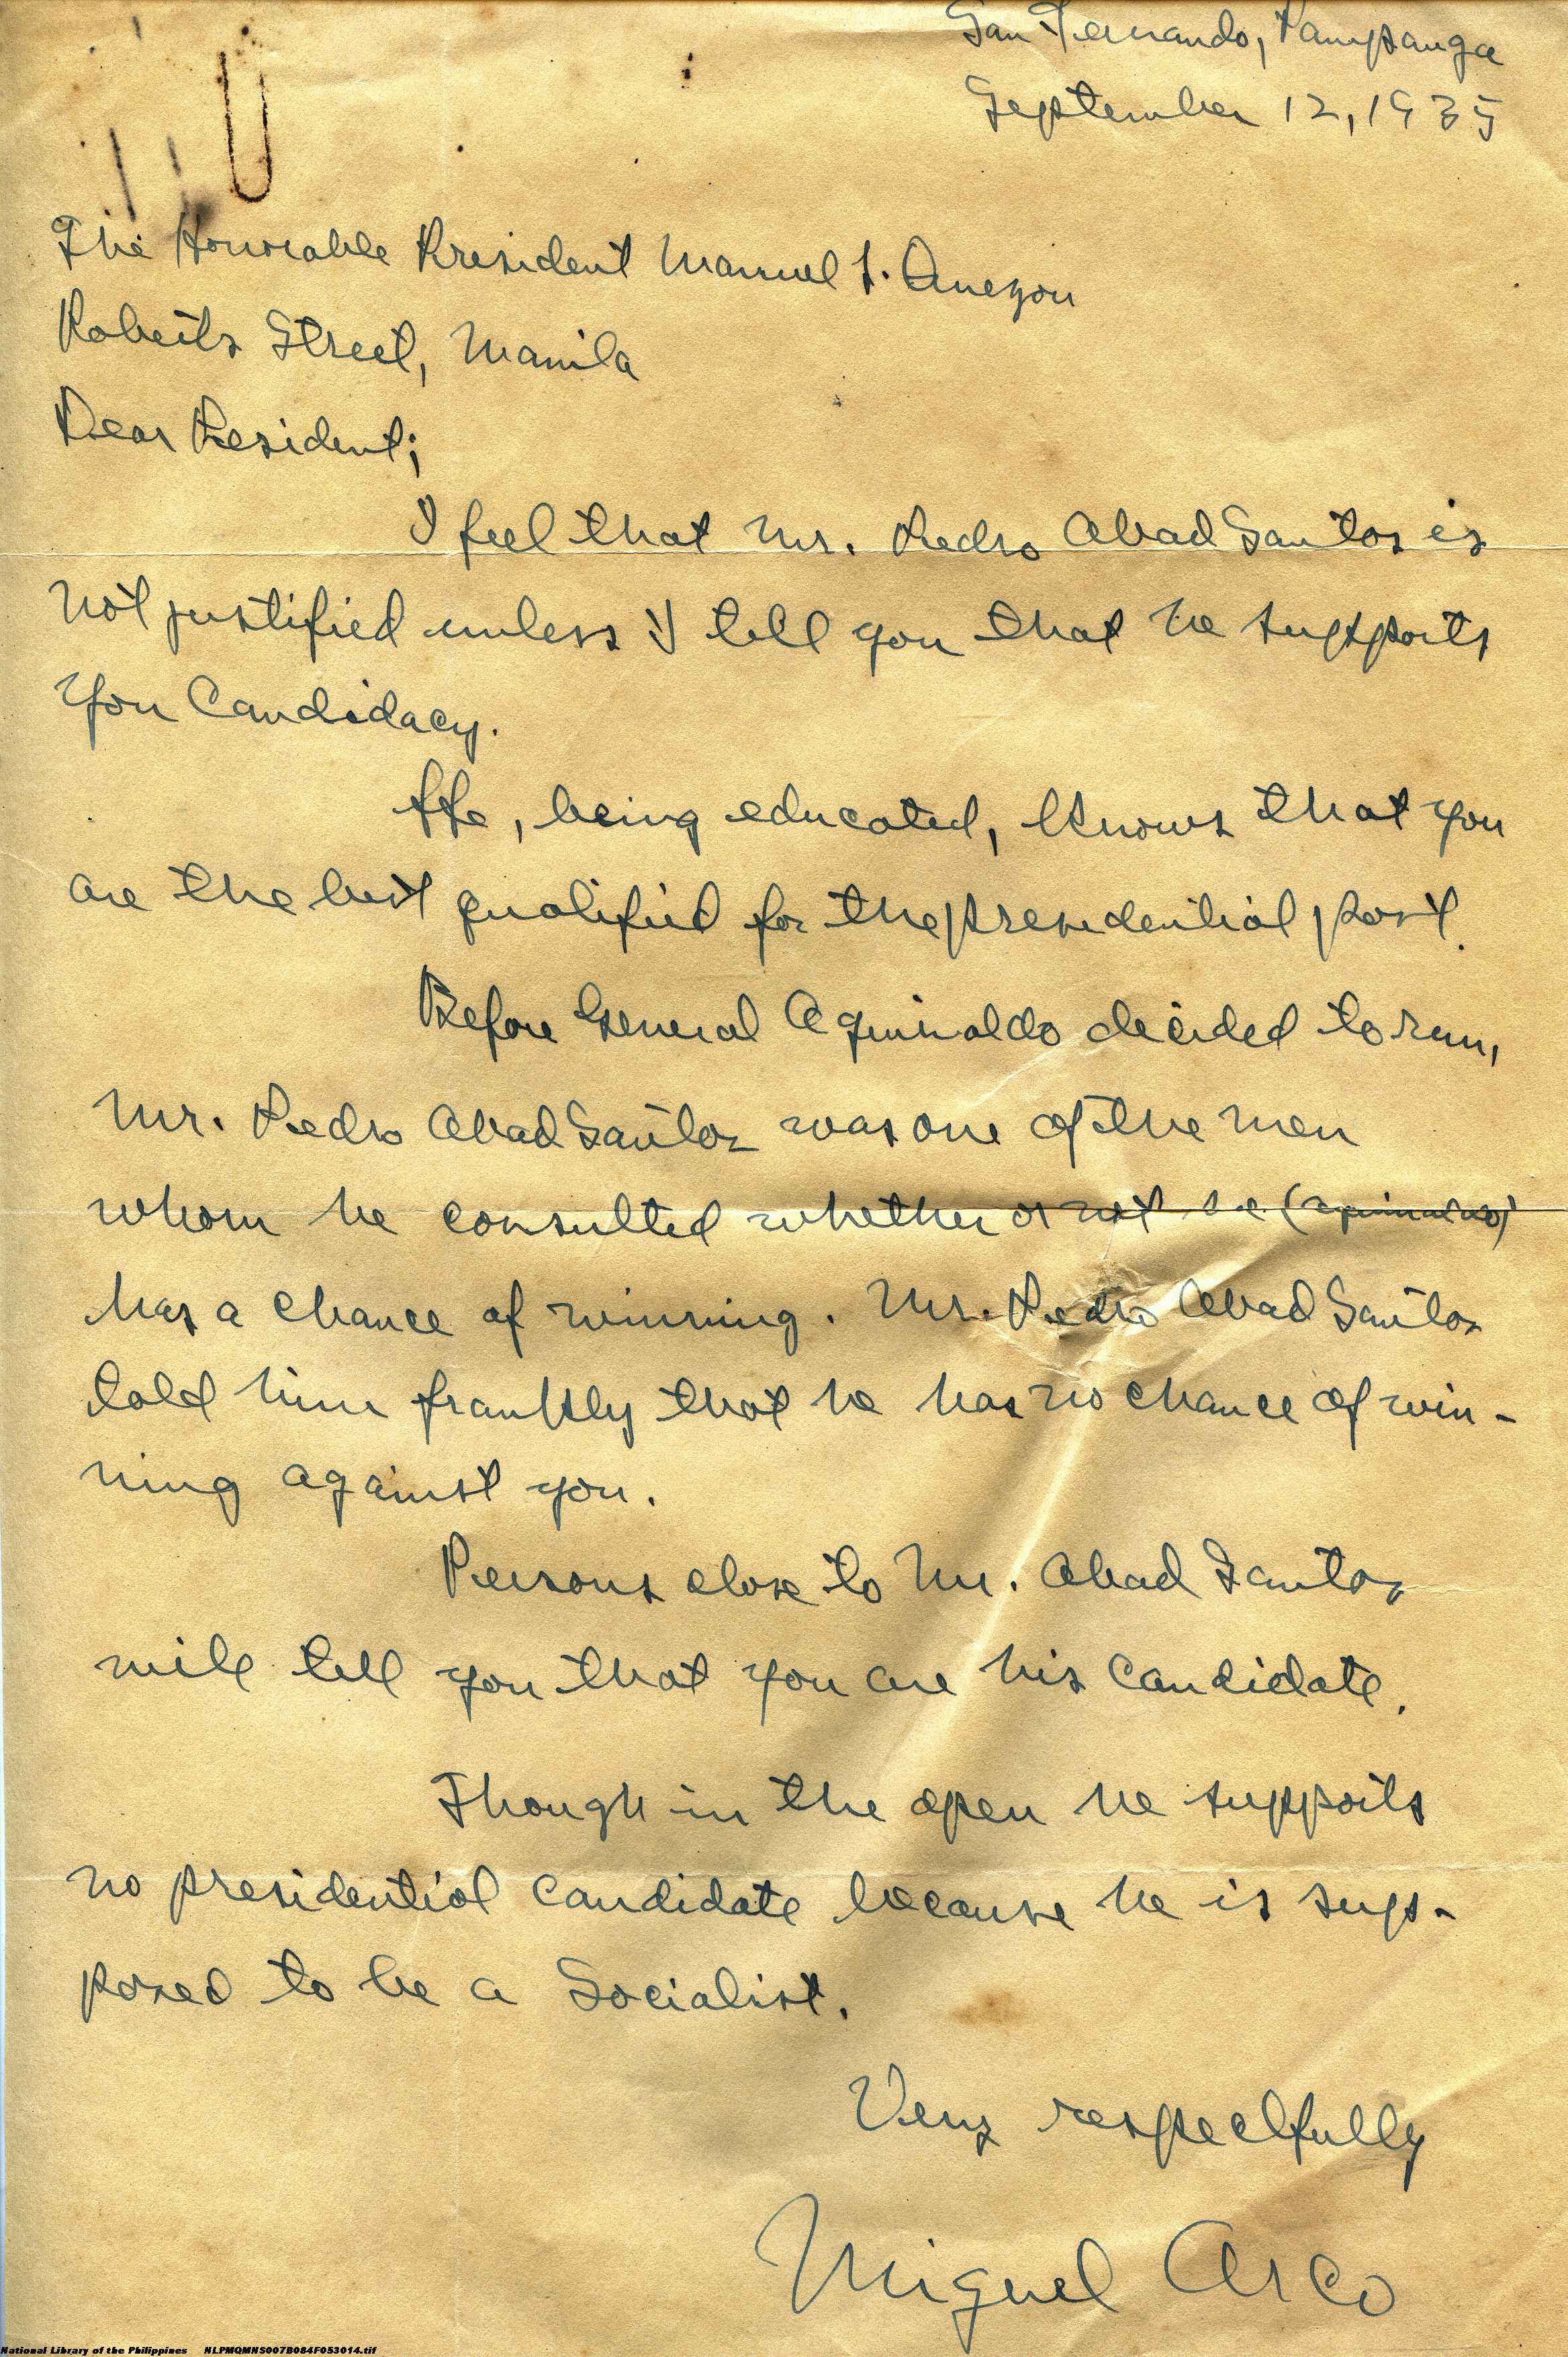 San Fernando, Pampanga
September 12, 1935
The Honorable President Manuel L. Quezon
Roberts Street, Manila
Dear President;
I feel that Mr. Pedro Abad Santos is
not justified unless I tell you that he supports
you Candidacy.
He, being educated, knows that you
are the best qualified for the presidential post.
Before General Aguinaldo decided to run,
Mr. Pedro Abad Santos was one of the men
whom he consulted whether or not he (Aguinaldo)
has a chance of winning. Mr. Pedro Abad Santos
told him frankly that he has no chance of win-
ning against you.
Persons close to Mr. Abad Santos
will tell you that you are his candidate.
Though in the open he supports
no presidential candidate because he is sup-
posed to be a Socialist.
Very respectfully
Miguel Arco
National Library of the Philippines NLPMQMNS007B084F053014.tif